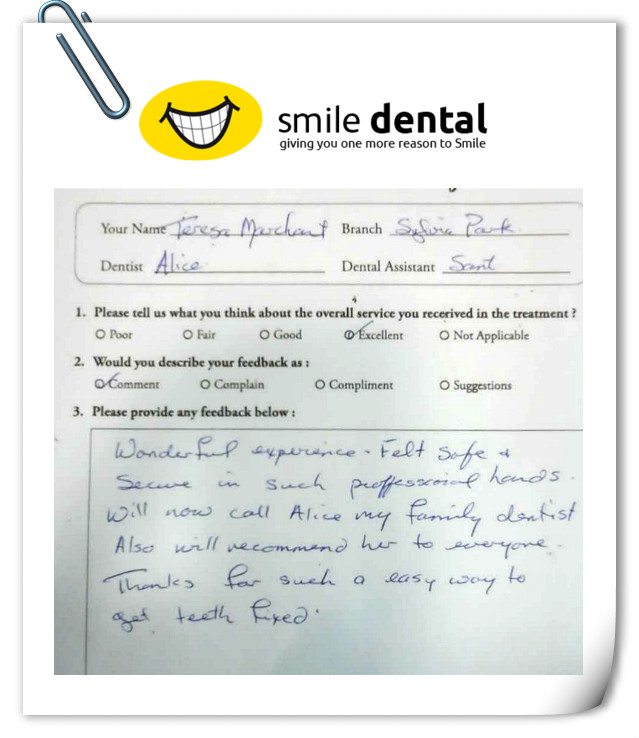 smile dental
giving you one more reason to Smile
Your Name Teresa Marchant Branch Sylvia Park
Dentist Alice Dental Assistant Sant
1. Please tell us what you think about the overall service you recerived in the treatment ?
O Poor O Fair O Good O Excellent O Not Applicable
2. Would you describe your feedback as :
O Comment O Complain O Compliment O Suggestions
3. Please provide any feedback below :
Wonderful experience. Felt safe &
Secure in such proffessional hands.
Will now call Alice my family dentist
Also will recommend her to everyone.
Thanks for such a easy way to
get teeth fixed.